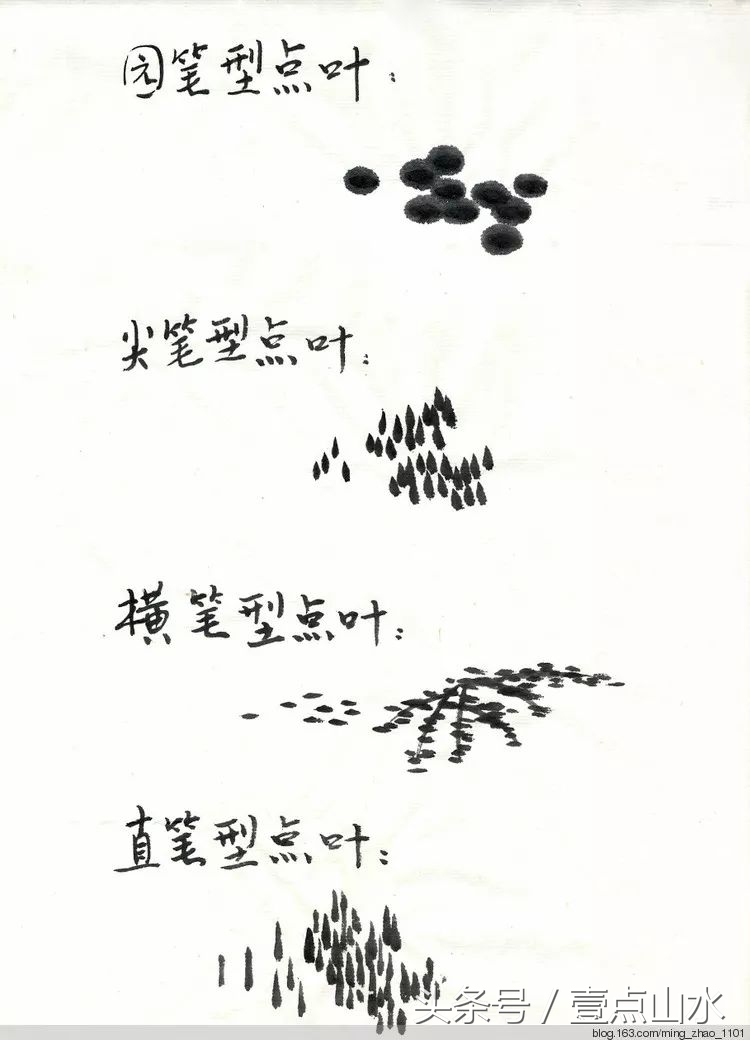 园笔型点叶：
尖笔型点叶：
横笔型点叶：
直笔型点叶：
头条号 / 壹点山水
blog.163.com/ming_zhao_1101